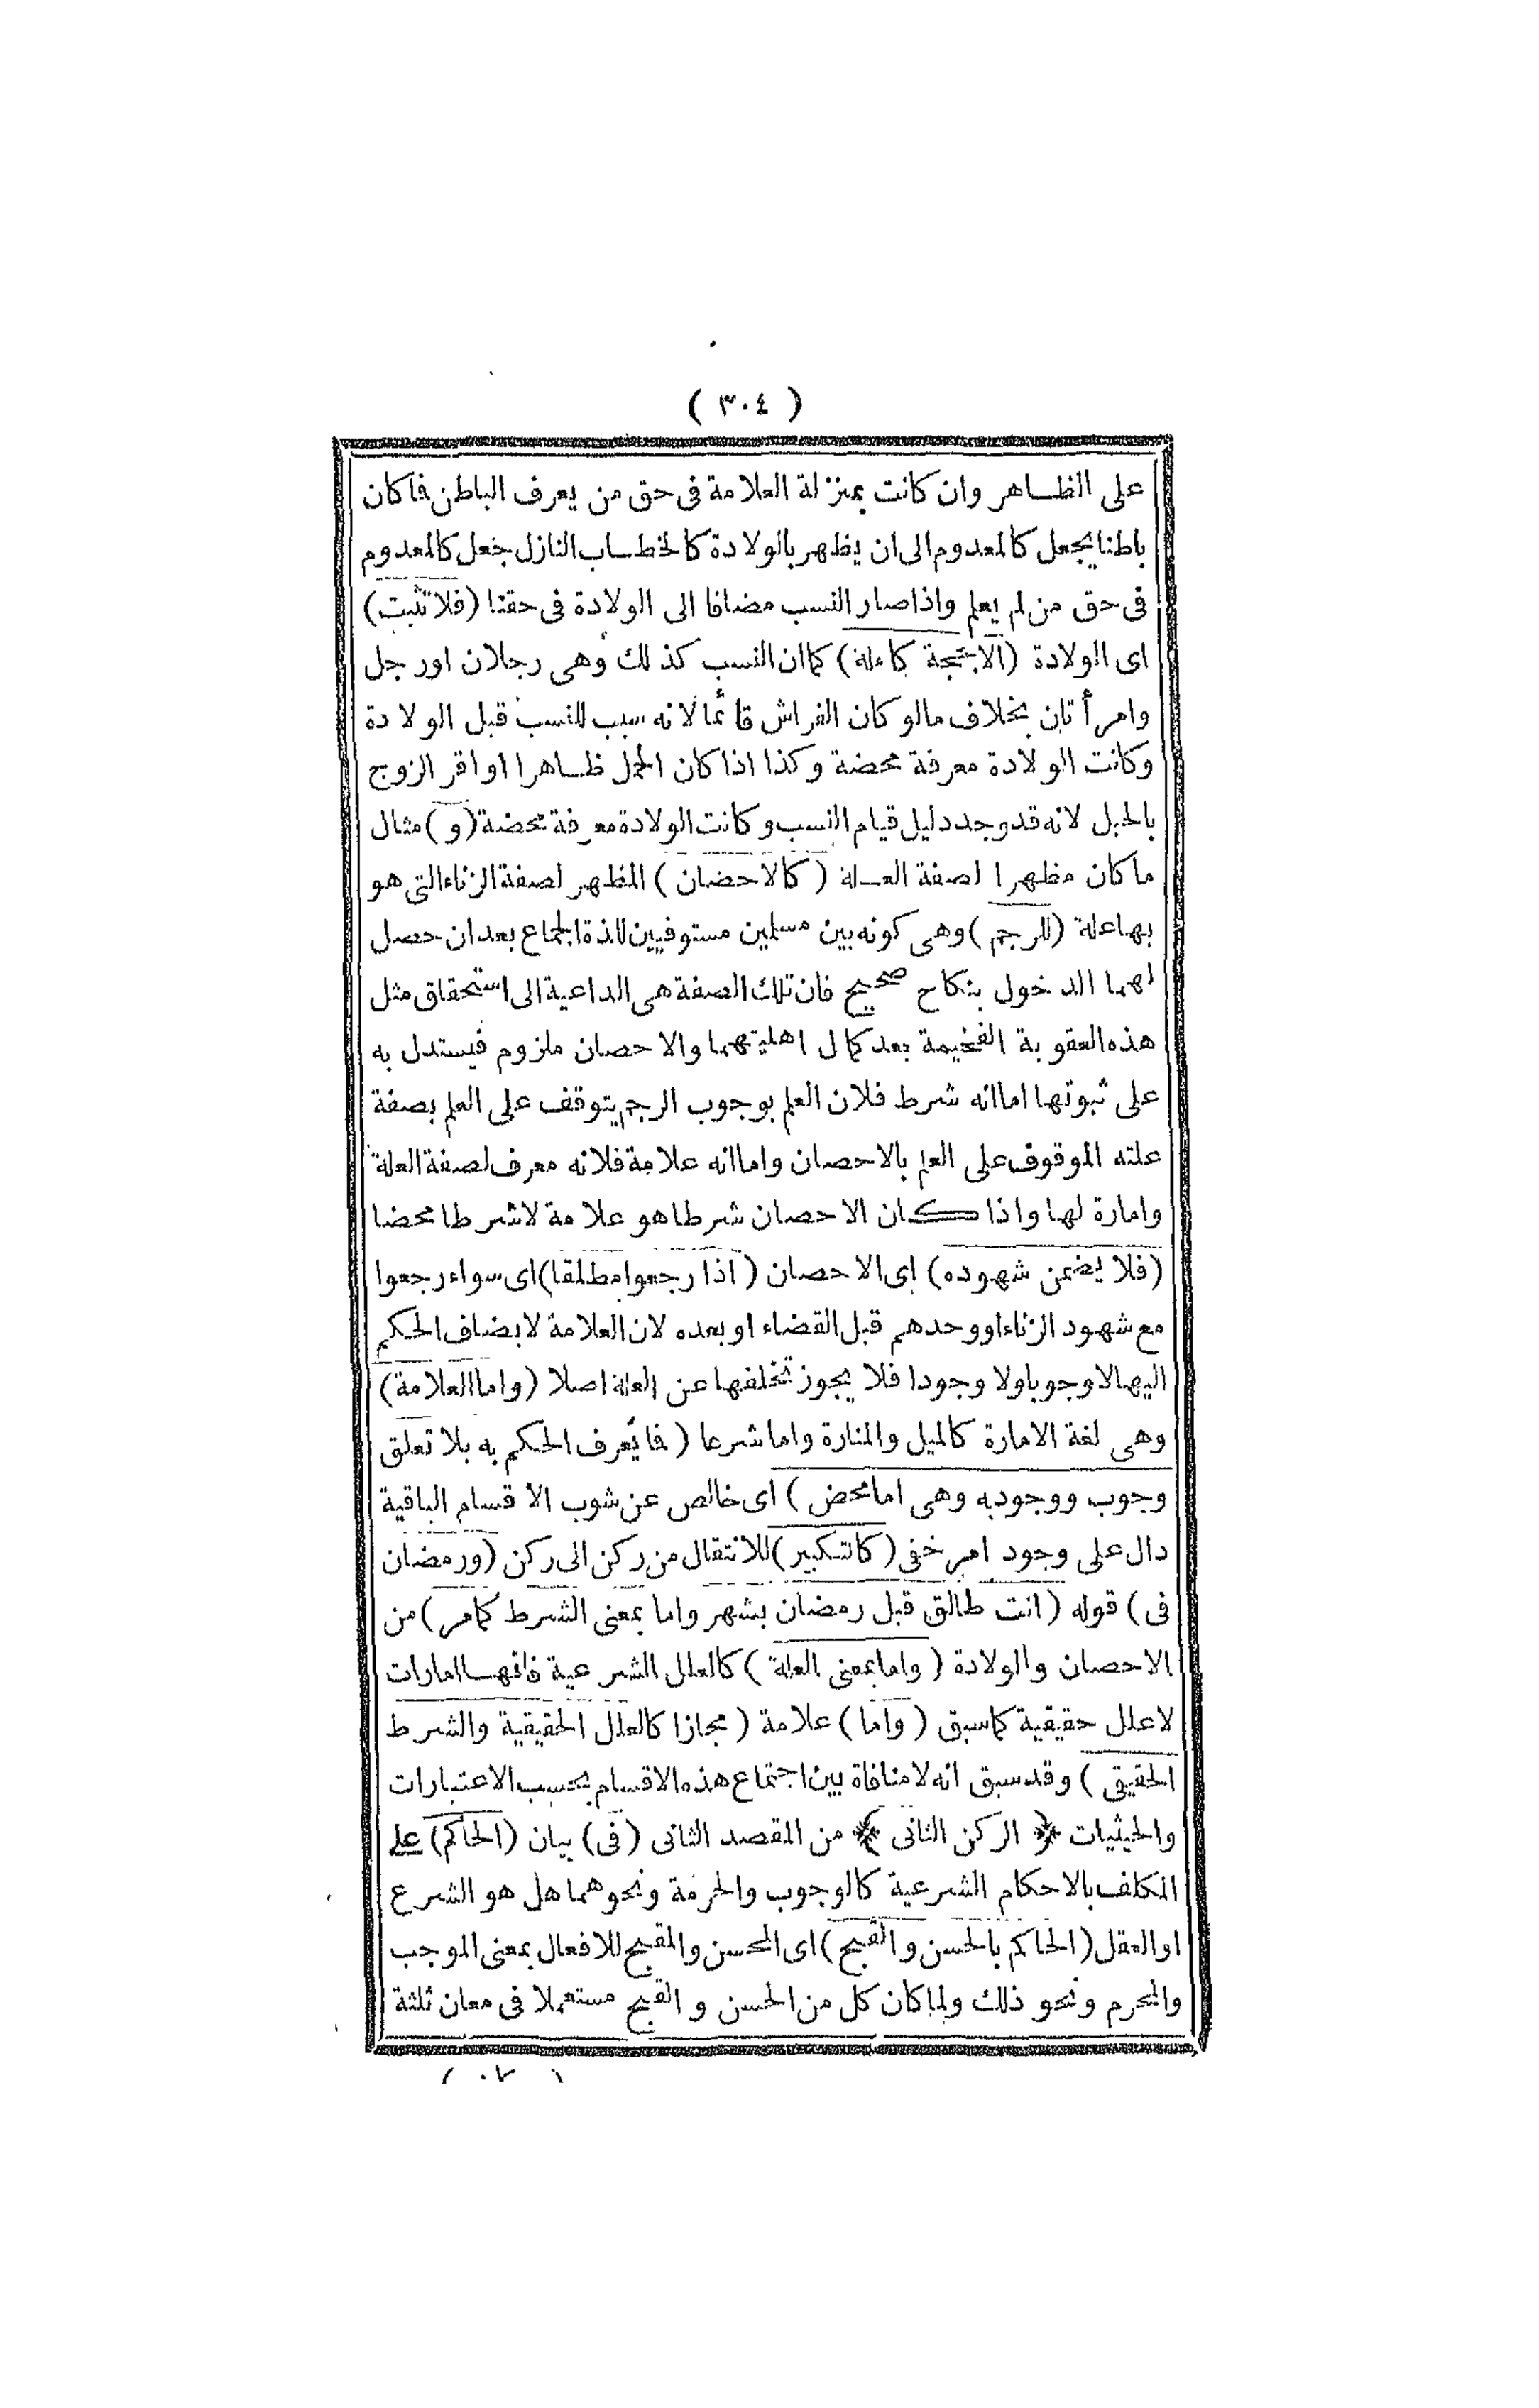 ( ٣٠٤ )
على الظاهر وان كانت بمنزلة العلامة فى حق من يعرف الباطن فاكان
باطنا يجعل كالمعدوم الى ان يظهر بالولادة كالخطاب النازل جعل كالمعدوم
فى حق من لم يعلم واذا صار النسب مضافا الى الولادة فى حقنا (فلا تثبت)
اى الولادة (الا بحجة كاملة) كما ان النسب كذلك وهى رجلان او رجل
وامرأتان بخلاف مالو كان الفراش قائما لانه سبب للنسب قبل الولادة
وكانت الولادة معرفة محضة وكذا اذا كان الحمل ظاهرا او اقر الزوج
بالحبل لانه قد وجد دليل قيام النسب وكانت الولادة معرفة محضة (و) مثال
ما كان مظهرا لصفة العلة (كالاحضان) المظهر لصفة الزناء التى هو
بها علة (للرجم) وهى كونه بين مسلمين مستوفيين للذة الجماع بعد ان حصل
لهما الدخول بنكاح صحيح فان تلك الصفة هى الداعية الى استحقاق مثل
هذه العقوبة الفخيمة بعد كمال اهليتهما والاحصان ملزوم فيستدل به
على ثبوتها اما انه شرط فلان العلم بوجوب الرجم يتوقف على العلم بصفة
علته الموقوف على العلم بالاحصان واما انه علامة فلانه معرف لصفة العلة
وامارة لها واذا كان الاحصان شرطا هو علامة لاشرطا محضا
(فلا يضمن شهوده) اى الاحصان (اذا رجعوا مطلقا) اى سواء رجعوا
مع شهود الزناء او وحدهم قبل القضاء او بعده لان العلامة لايضاف الحكم
اليها لا وجوبا ولا وجودا فلا يجوز تخلفها عن العلة اصلا (واما العلامة)
وهى لغة الامارة كالميل والمنارة واما شرعا (فا يعرف الحكم به بلا تعلق
وجوب ووجود به وهى اما محض) اى خالص عن شوب الاقسام الباقية
دال على وجود امر خفى (كالتكبير) للانتقال من ركن الى ركن (ورمضان
فى) قوله (انت طالق قبل رمضان بشهر واما بمعنى الشرط كمامر) من
الاحصان والولادة (واما بمعنى العلة) كالعلل الشرعية فانها امارات
لاعلل حقيقية كما سبق (واما) علامة (مجازا كالعلل الحقيقية والشرط
الحقيقى) وقد سبق انه لا منافاة بين اجتماع هذه الاقسام بحسب الاعتبارات
والحيثيات ﴿ الركن الثانى ﴾ من المقصد الثانى (فى) بيان (الحاكم) على
المكلف بالاحكام الشرعية كالوجوب والحرمة ونحوهما هل هو الشرع
او العقل (الحاكم بالحسن والقبح) اى المحسن والمقبح للافعال بمعنى الموجب
والمحرم ونحو ذلك ولما كان كل من الحسن والقبح مستعملا فى معان ثلثة